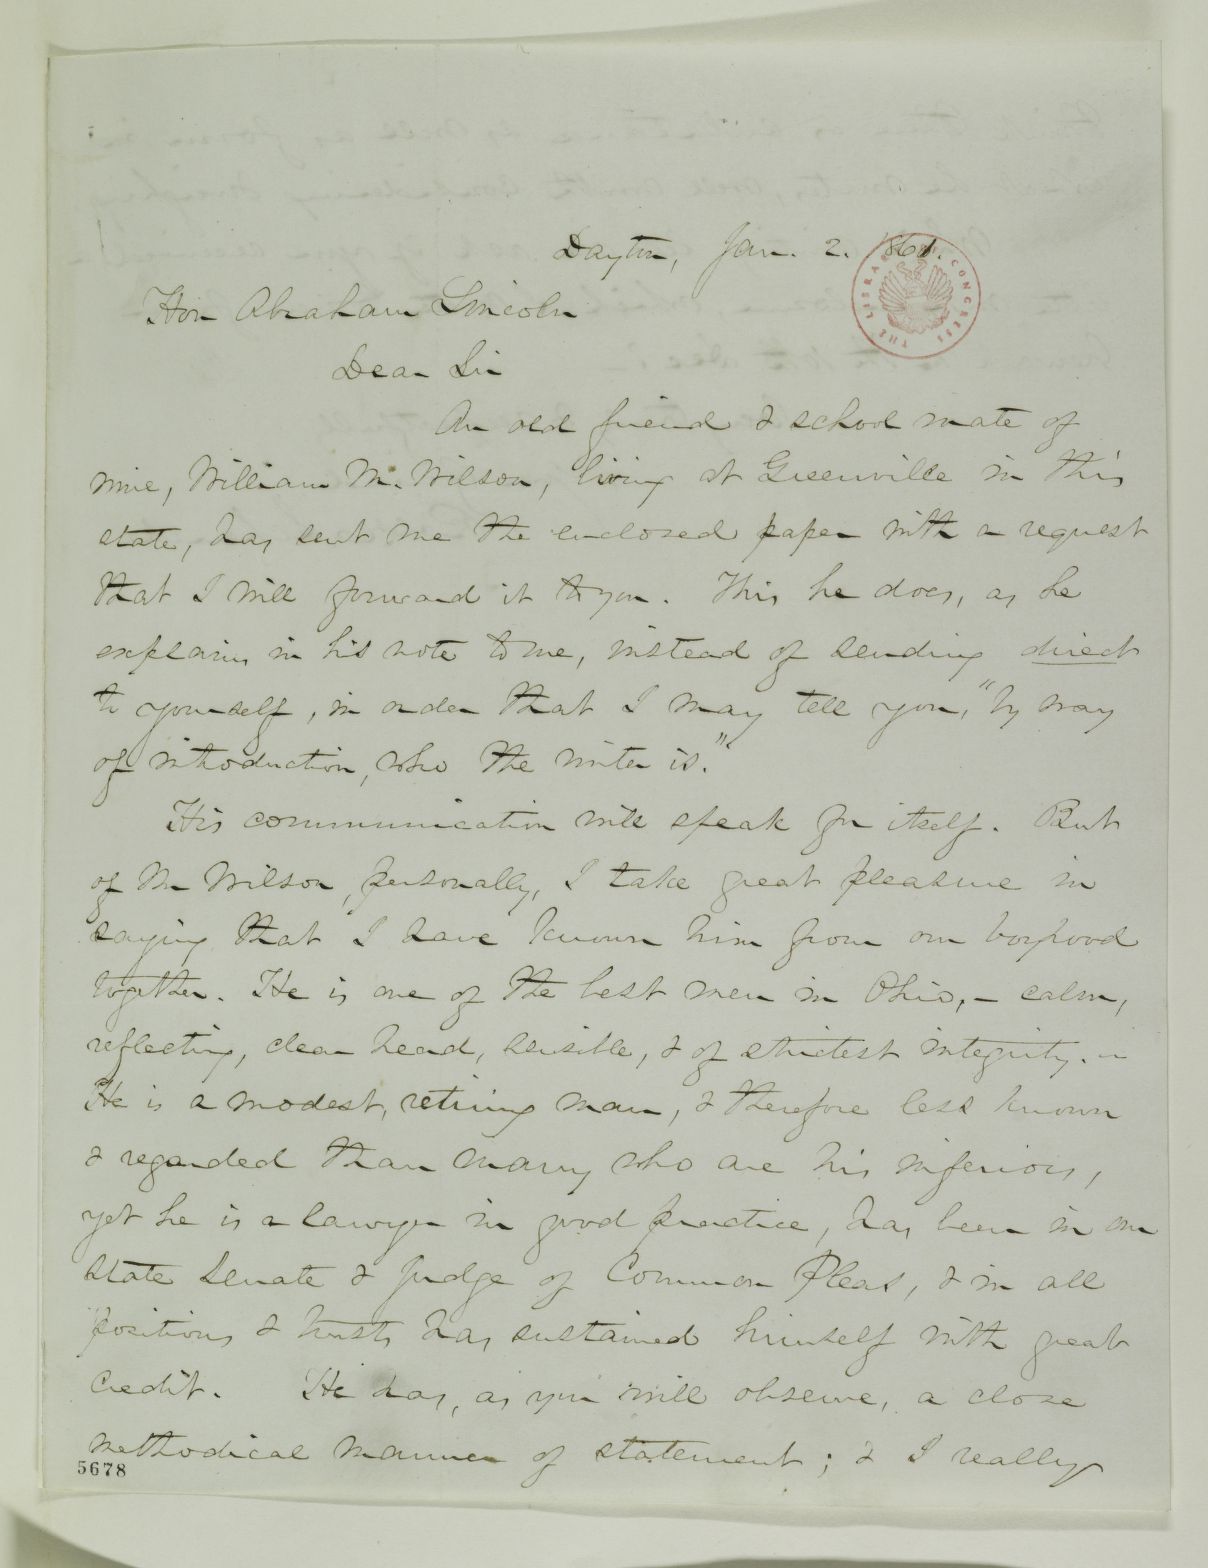 Dayton, Jan. 2. 1861.
THE LIBRARY OF CONGRESS
Hon Abraham Lincoln
Dear Sir
An old friend & school mate of
mine, William M. Wilson, living at Greenville in this
state, has sent me the enclosed paper with a request
that I will forward it to you. This he does, as he
explains in his note to me, instead of sending direct
to yourself, in order that I may tell you, "by way
of introduction, who the writer is."
His communication will speak for itself. But
of Mr Wilson, personally, I take great pleasure in
saying that I have known him from our boyhood
together. He is one of the best men in Ohio, - calm,
reflecting, clear head, sensible, & of strictest integrity. -
He is a modest, retiring man, & therefore less known
& regarded than many who are his inferiors,
yet he is a lawyer in good practice, has been in our
state Senate & Judge of Common Pleas, & in all
positions & trusts has sustained himself with great
credit. He has, as you will observe, a close
methodical manner of statement; & I really
5678